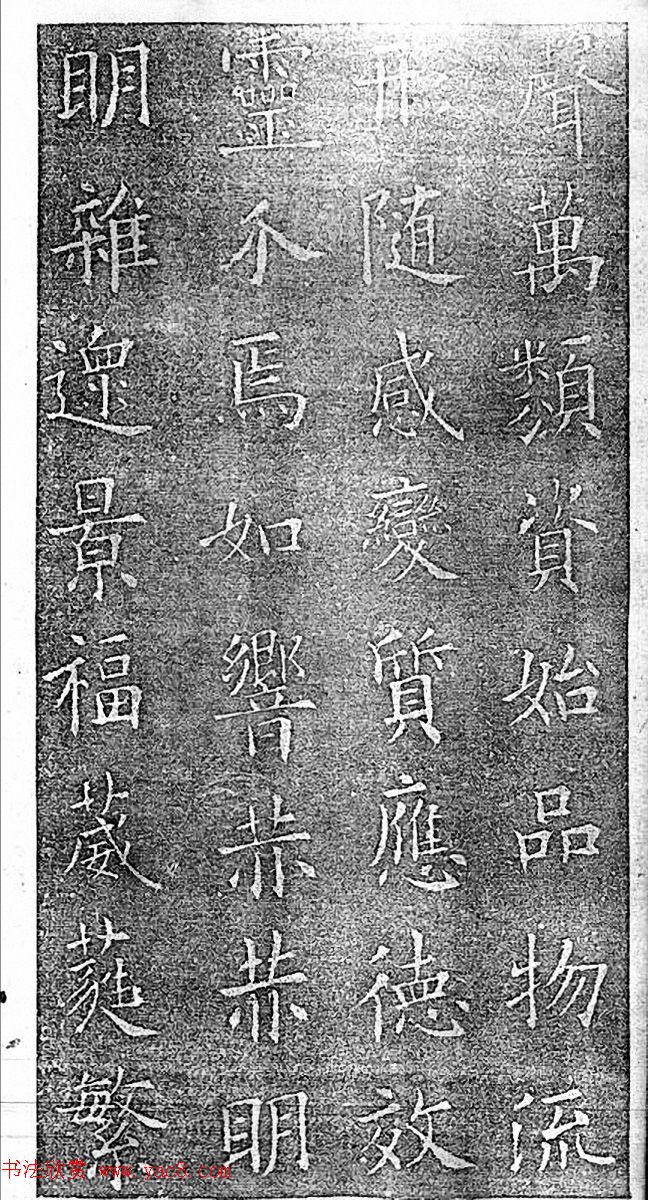 聲萬類資始品物流
形随感變質應德效
靈不焉如響赫赫明
明雜遝景福葳蕤繁
书法欣赏 www.yac8.com